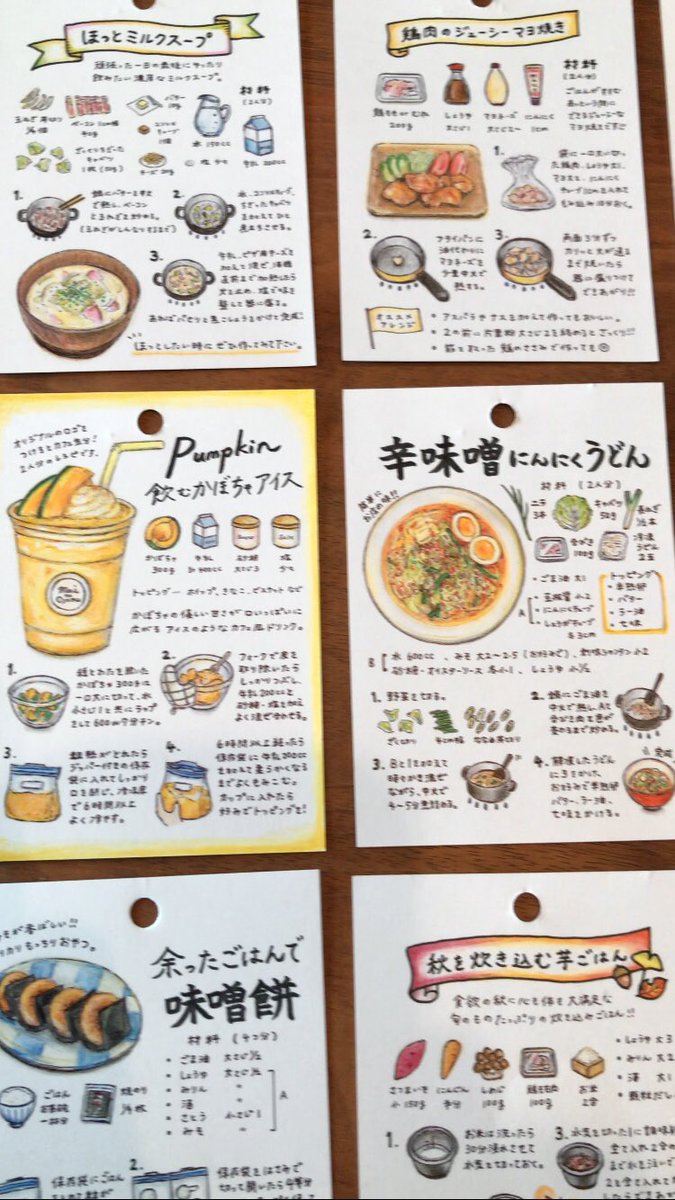 ほっとミルクスープ
頑張った一日の最後にゆったり
飲みたい濃厚なミルクスープ。
材料
(2人分)
バター
10g
水 150cc
牛乳 200cc
チーズ 20g
1.
鍋にバターを中火
で熱し、ベーコン
と玉ねぎを炒める。
(玉ねぎがしんなりするまで)
2.
水、コンソメキューブ、
ちぎったキャベツ
を加えてひと
煮立ちさせる。
3.
牛乳、ピザ用チーズを
加えて混ぜ沸騰
直前まで加熱したら
火を止め、塩で味を
整して器に盛る。
あればパセリと黒こしょうをかけて完成!
ほっとしたい時にぜひ作ってみて下さい。
鶏肉のジューシーマヨ焼き
材料
(2人分)
鶏ももorむね
200g
しょうゆ
大さじ1
マヨネーズ
にんにく
1cm
ごはんがすすむ
あっという間に
できるジューシーな
マヨ焼きです!!
1.
袋に一口大に切っ
た鶏肉、しょうゆ大1、
マヨ大2、にんにく
チューブ1cmを入れて
もみ込み10分おく。
2.
フライパンに
油代わりに
マヨネーズを
少量中火で
熱する。
3.
両面3分ずつ
カリッと火が通る
まで焼いたら
器に盛りつけて
できあがり!!
オススメ
アレンジ
・アスパラやナスを加えて作ってもおいしい。
・2の前に片栗粉大さじ2を絡めるとざっくり!!!
・筋をとった鶏のささみで作っても
オリジナルのロゴを
つけるとカフェ気分!
2人分のレシピです。
Pumpkin
飲むかぼちゃアイス
かぼちゃ
300g
牛乳
計400cc
砂糖
大さじ3
塩
少々
トッピング ー ホイップ、きなこ、ビスケットなど
かぼちゃの優しい甘さが口いっぱいに
広がるアイスのようなカフェ風ドリンク。
1.
種とわたを除いた
かぼちゃ300gを
一口大に切って、水
小さじ1と共にラップ
をして600w7分チン。
2.
フォークで皮を
取り除いたら
しっかりつぶし、
牛乳200ccと
砂糖・塩を加え
よく混ぜ合せる。
3.
粗熱がとれたら
ジッパー付きの保存
袋に入れてしっかり
口を閉じ、冷凍庫
で6時間以上
よく冷やす。
4.
6時間以上経ったら
保存袋に牛乳200cc
を加えて柔らかくなる
までよくもみこむ。
カップに入れたら
好みでトッピングを!
辛味噌にんにくうどん
簡単に
お店の味!!
材料 (2人分)
ニラ
3本
キャベツ
50g
長ねぎ
1/2本
合びき
100g
冷凍
うどん
2玉
・ごま油 大1
A
・豆板醤 小2
・にんにくチューブ
・しょうがチューブ
各3cm
トッピング
・半熟卵
・バター
・ラー油
・七味
B
水 600cc、みそ 大2〜2.5(お好みで)、
砂糖・オイスターソース 各小1、しょうゆ 小1/2
1. 野菜を切る。
ざく切り
2. 鍋にごま油を
中火で熱し、Aと
合びき肉を色が
変わるまで炒める。
3. Bと1を加えて
時々かき混ぜ
ながら、中火で
4〜5分煮詰める。
4. 解凍したうどん
に3をかけ、
お好みで半熟卵
バター、ラー油、
七味をかける。
完成
余ったごはんで
味噌餅
材料 (4コ分)
・ごま油 大さじ1/2
・しょうゆ 大さじ1/2
・みりん 〃
・酒 〃
・さとう 小さじ1
・みそ 〃
A
ごはん
お茶碗
一杯分
焼のり
1/4枚
保存袋にごはん
2.
保存袋をはさみで
切って開いたら4等分
秋を炊き込む芋ごはん
食欲の秋に心も体も大満足な
旬のものたっぷりの炊き込みごはん!!
さつまいも
小 150g
にんじん
半分
しめじ
100g
鶏もも肉
100g
お米
2合
・しょうゆ 大3
・みりん 大2
・酒 大1
・顆粒だし
1.
お米は洗ったら
30分浸水させて
水気を切っておく。
3.